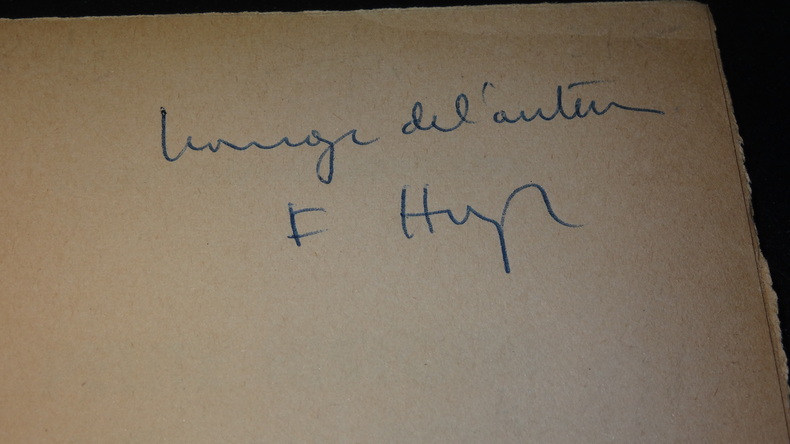 hommage de l'auteur
F